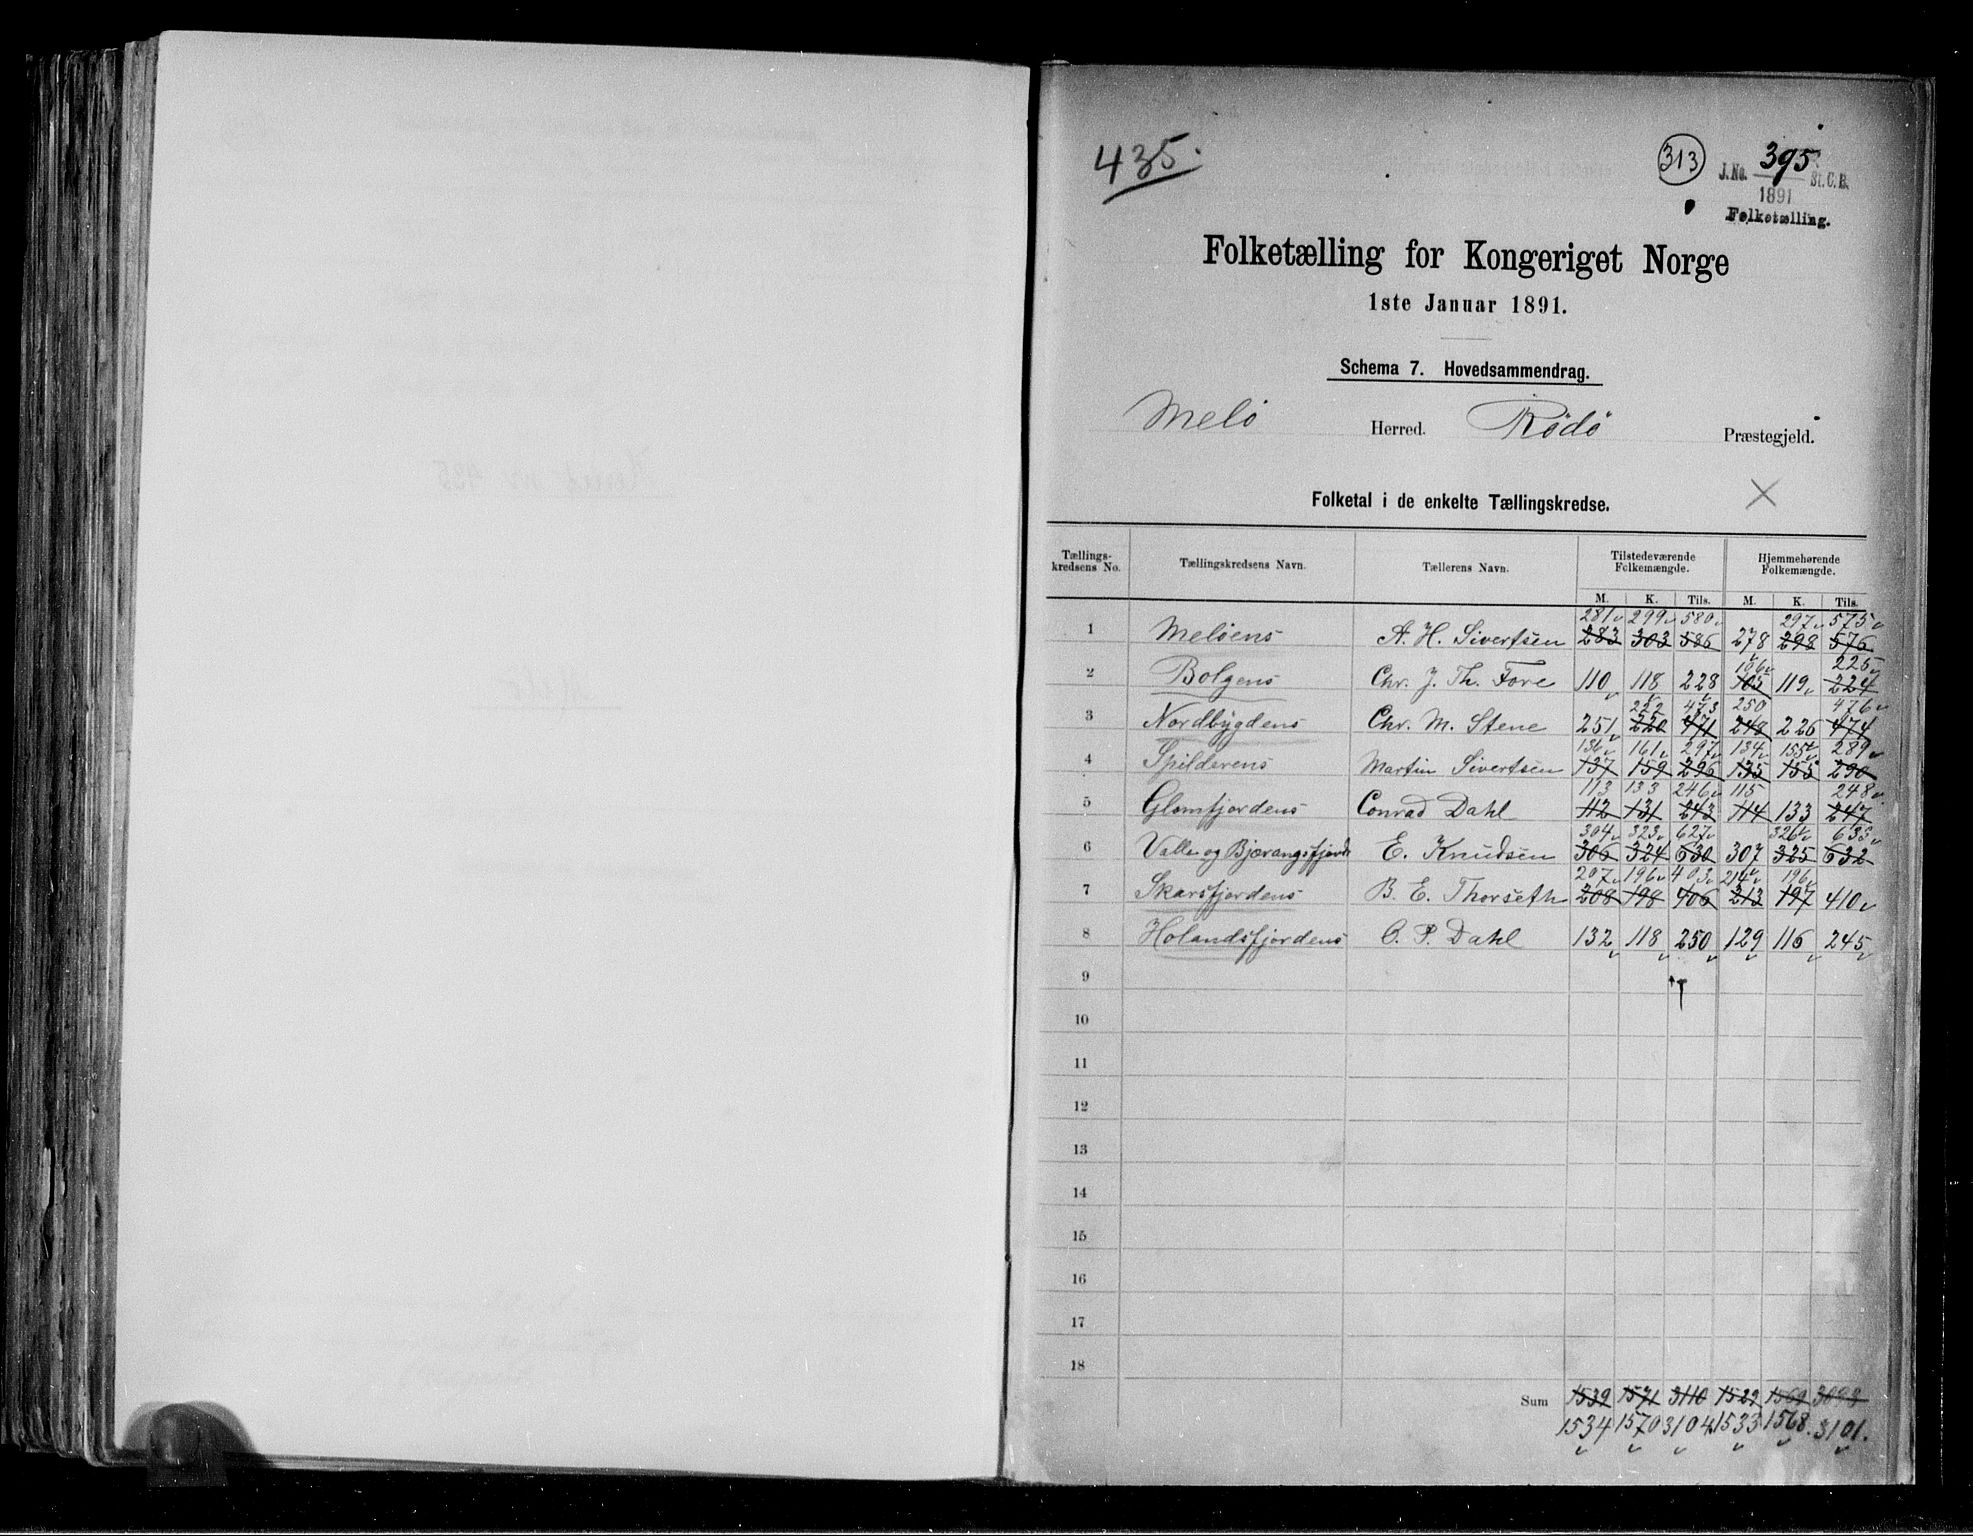 435.
313
J. No. 395 St. C. B.
1891
Folketælling.
Folketælling for Kongeriget Norge
1ste Januar 1891.
Schema 7. Hovedsammendrag.
Melö Herred. Rödö Præstegjeld.
Folketal i de enkelte Tællingskredse.
Tællings-kredsens No. Tællingskredsens Navn. Tællerens Navn. Tilstedeværende Folkemængde. Hjemmehørende Folkemængde.
M. K. Tils. M. K. Tils.
281 299 580 297 575
1 Melöens A. H. Sivertsen 283 303 586 278 298 576
106 225
2 Bolgens Chr. J. Th. Fore 110 118 228 105 119 224
222 473 250 476
3 Nordbygdens Chr. M. Stene 251 220 471 248 226 474
136 161 297 134 155 289
4 Spilderens Martin Sivertsen 137 159 296 135 155 290
113 133 246 115 248
5 Glomfjordens Conrad Dahl 112 131 243 114 133 247
304 323 627 326 633
6 Valla og Bjærangsfjords E. Knudsen 306 324 630 307 325 632
207 196 403 214 196
7 Skarsfjordens B. E. Thorseth 208 198 406 213 197 410
8 Holandsfjordens O. P. Dahl 132 118 250 129 116 245
9
10
11
12
13
14
15
16
17
18
Sum 1539 1571 3110 1529 1569 3098
1534 1570 3104 1533 1568. 3101.